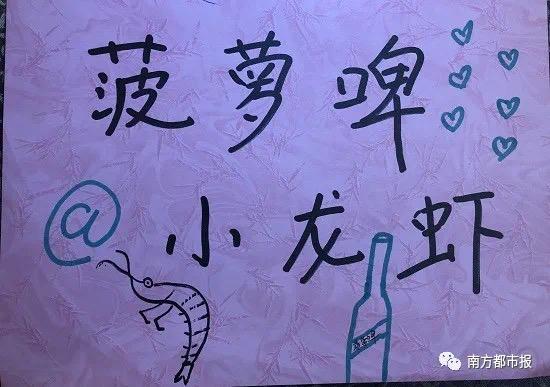 菠萝啤
@小龙虾
南方都市报